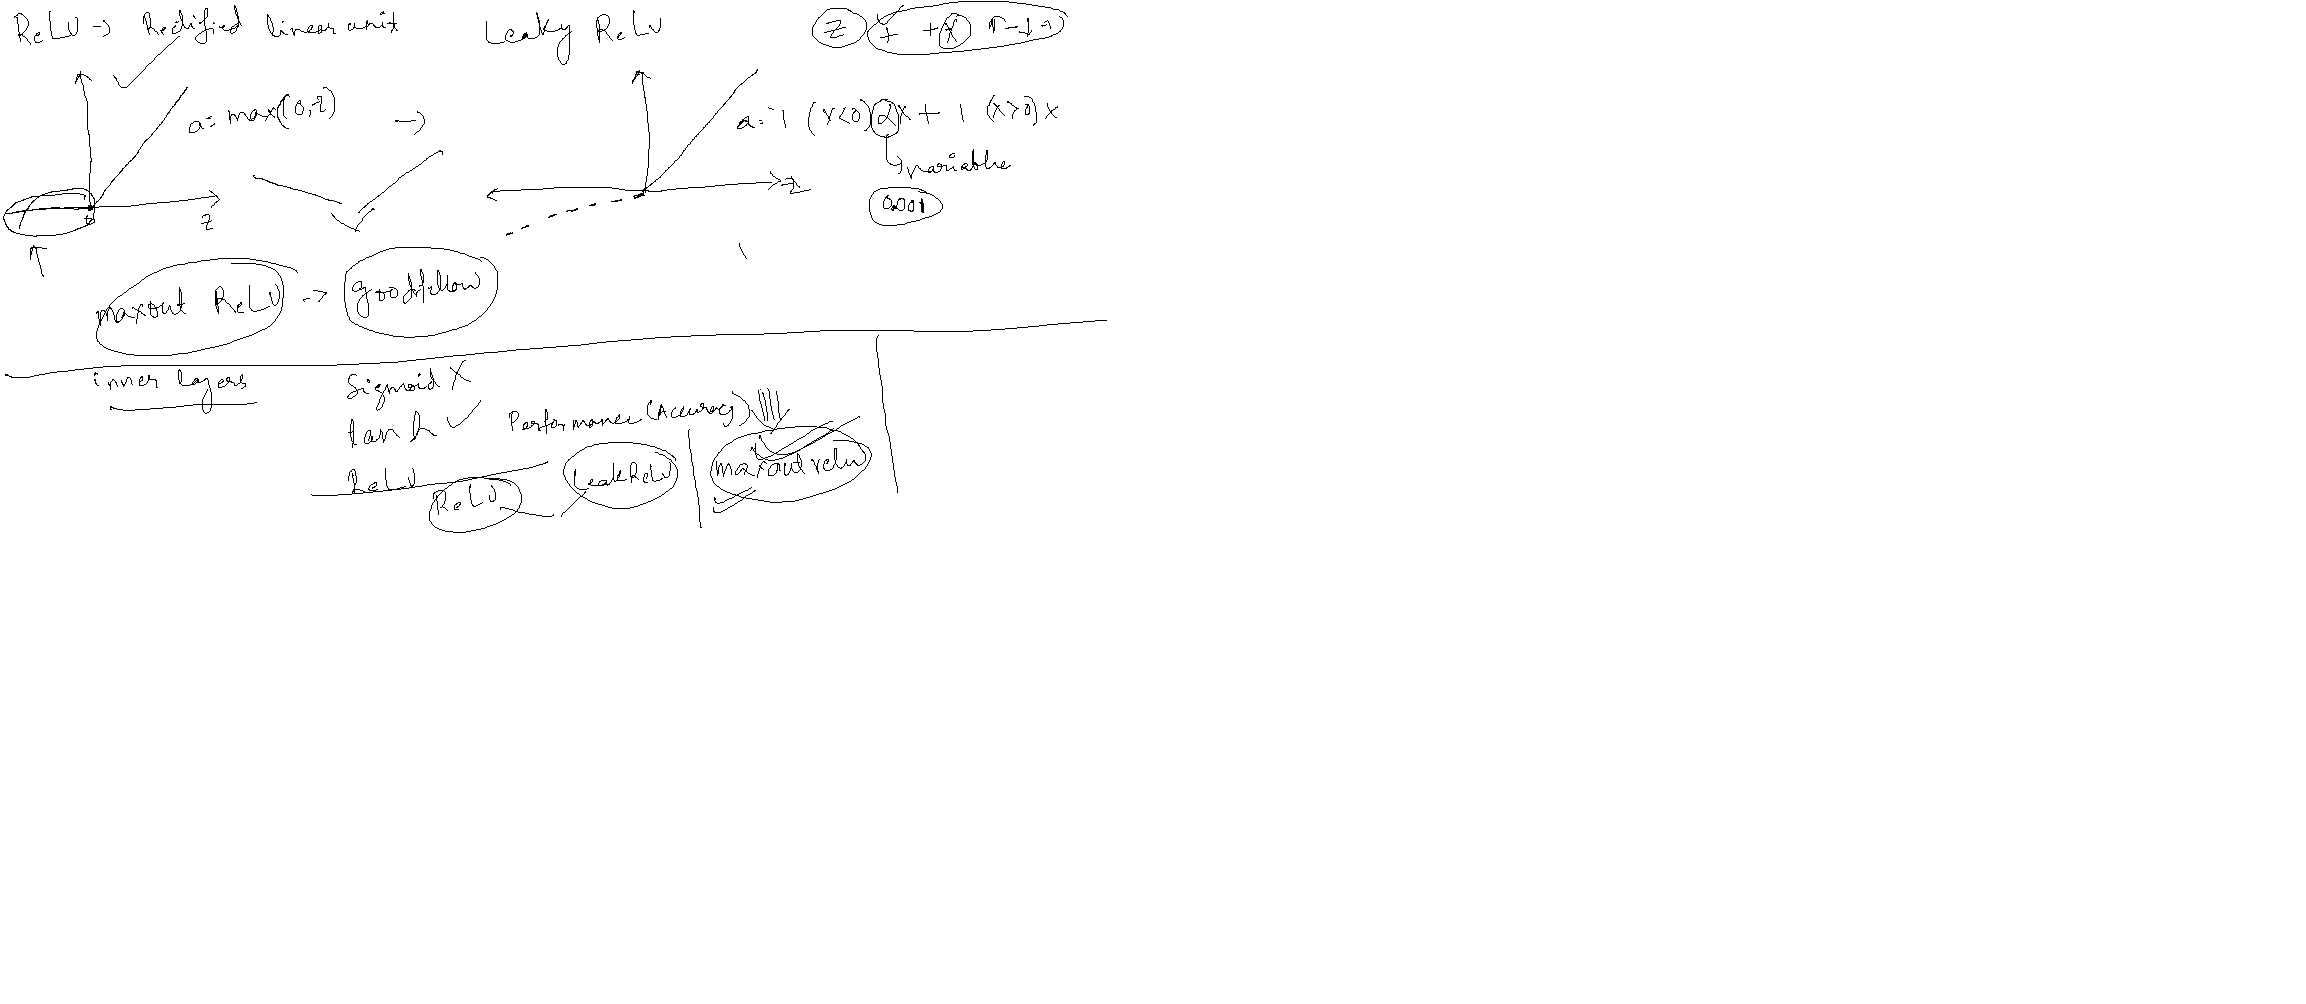 ReLU → Rectified linear unit
Leaky ReLU
Z + + x ↑→↓→
a = max(0, z)
→
a = 1 (x<0) αx + 1 (x>0) x
variable
0.001
z
z
maxout ReLU → goodfellow
inner layers
Sigmoid X
tan h ✓
Performance (Accuracy)
ReLU
ReLU
LeakReLU
maxout relu